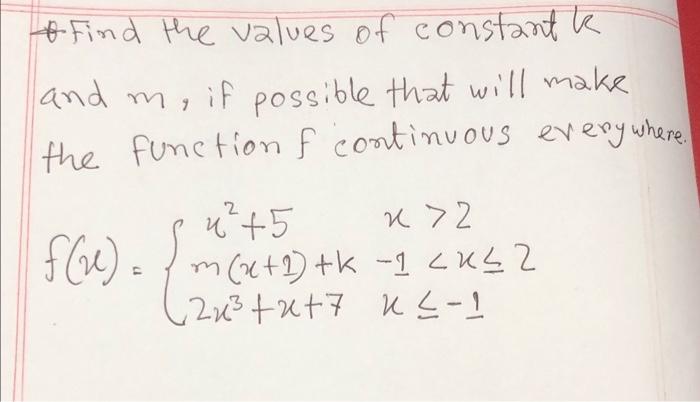 Find the values of constant k
and m, if possible that will make
the function f continuous everywhere.
f(x) = { x²+5 x > 2
m(x+1)+k -1 < x ≤ 2
2x³+x+7 x ≤ -1